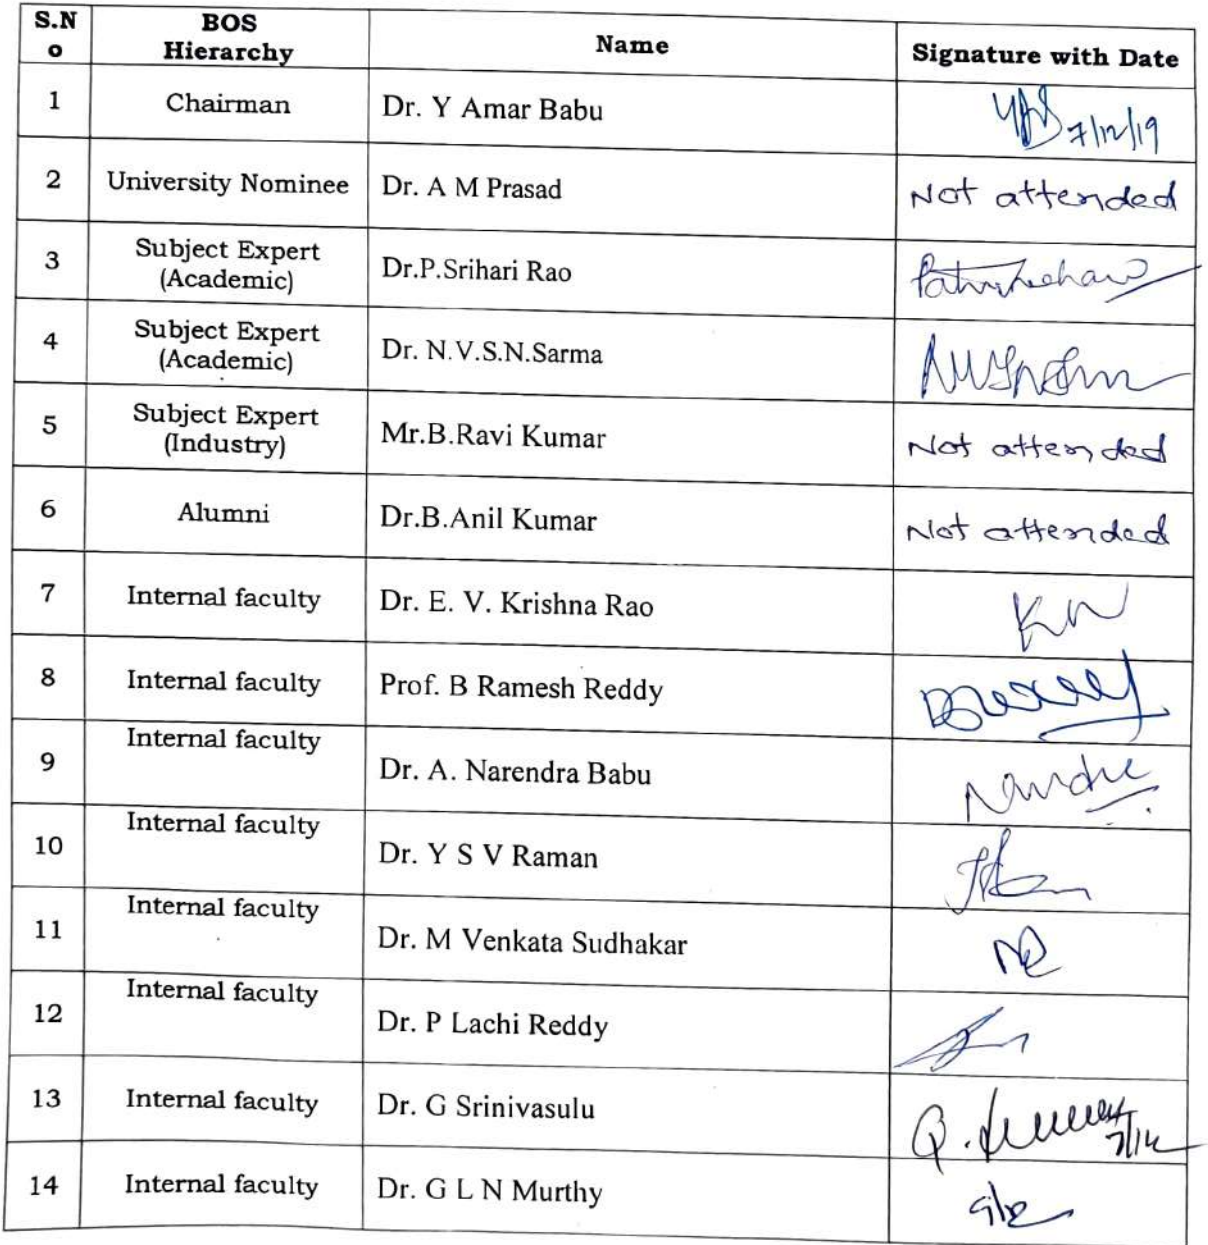 S.N
o
BOS
Hierarchy
Name
Signature with Date
1 Chairman Dr. Y Amar Babu 7/12/19
2 University Nominee Dr. A M Prasad Not attended
3 Subject Expert
(Academic) Dr.P.Srihari Rao
4 Subject Expert
(Academic) Dr. N.V.S.N.Sarma
5 Subject Expert
(Industry) Mr.B.Ravi Kumar Not attended
6 Alumni Dr.B.Anil Kumar Not attended
7 Internal faculty Dr. E. V. Krishna Rao
8 Internal faculty Prof. B Ramesh Reddy
9 Internal faculty Dr. A. Narendra Babu
10 Internal faculty Dr. Y S V Raman
11 Internal faculty Dr. M Venkata Sudhakar
12 Internal faculty Dr. P Lachi Reddy
13 Internal faculty Dr. G Srinivasulu 7/12
14 Internal faculty Dr. G L N Murthy